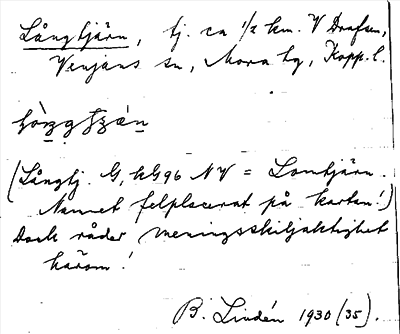 Långtjärn, tj. ca 1/2 km. V Drafsen,
Venjans sn, Mora tg, Kopp. l.
(Långtj. G, kG 96 NV = Lomtjärn.
Namnet felplacerat på kartan!)
Dock råder meningsskiljaktighet
härom!
B. Lindén 1930 (35).